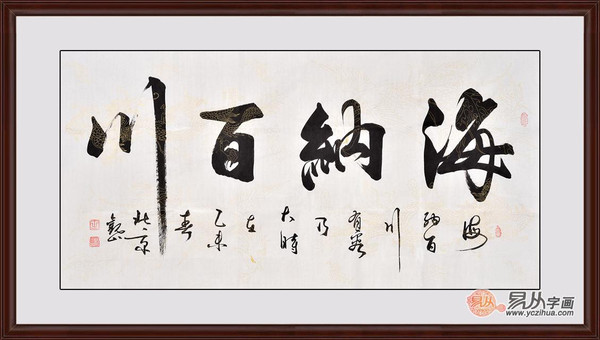 海納百川
海
納百
川
有容
乃
大時
在
乙未
春
北京
易从字画
www.yczihua.com